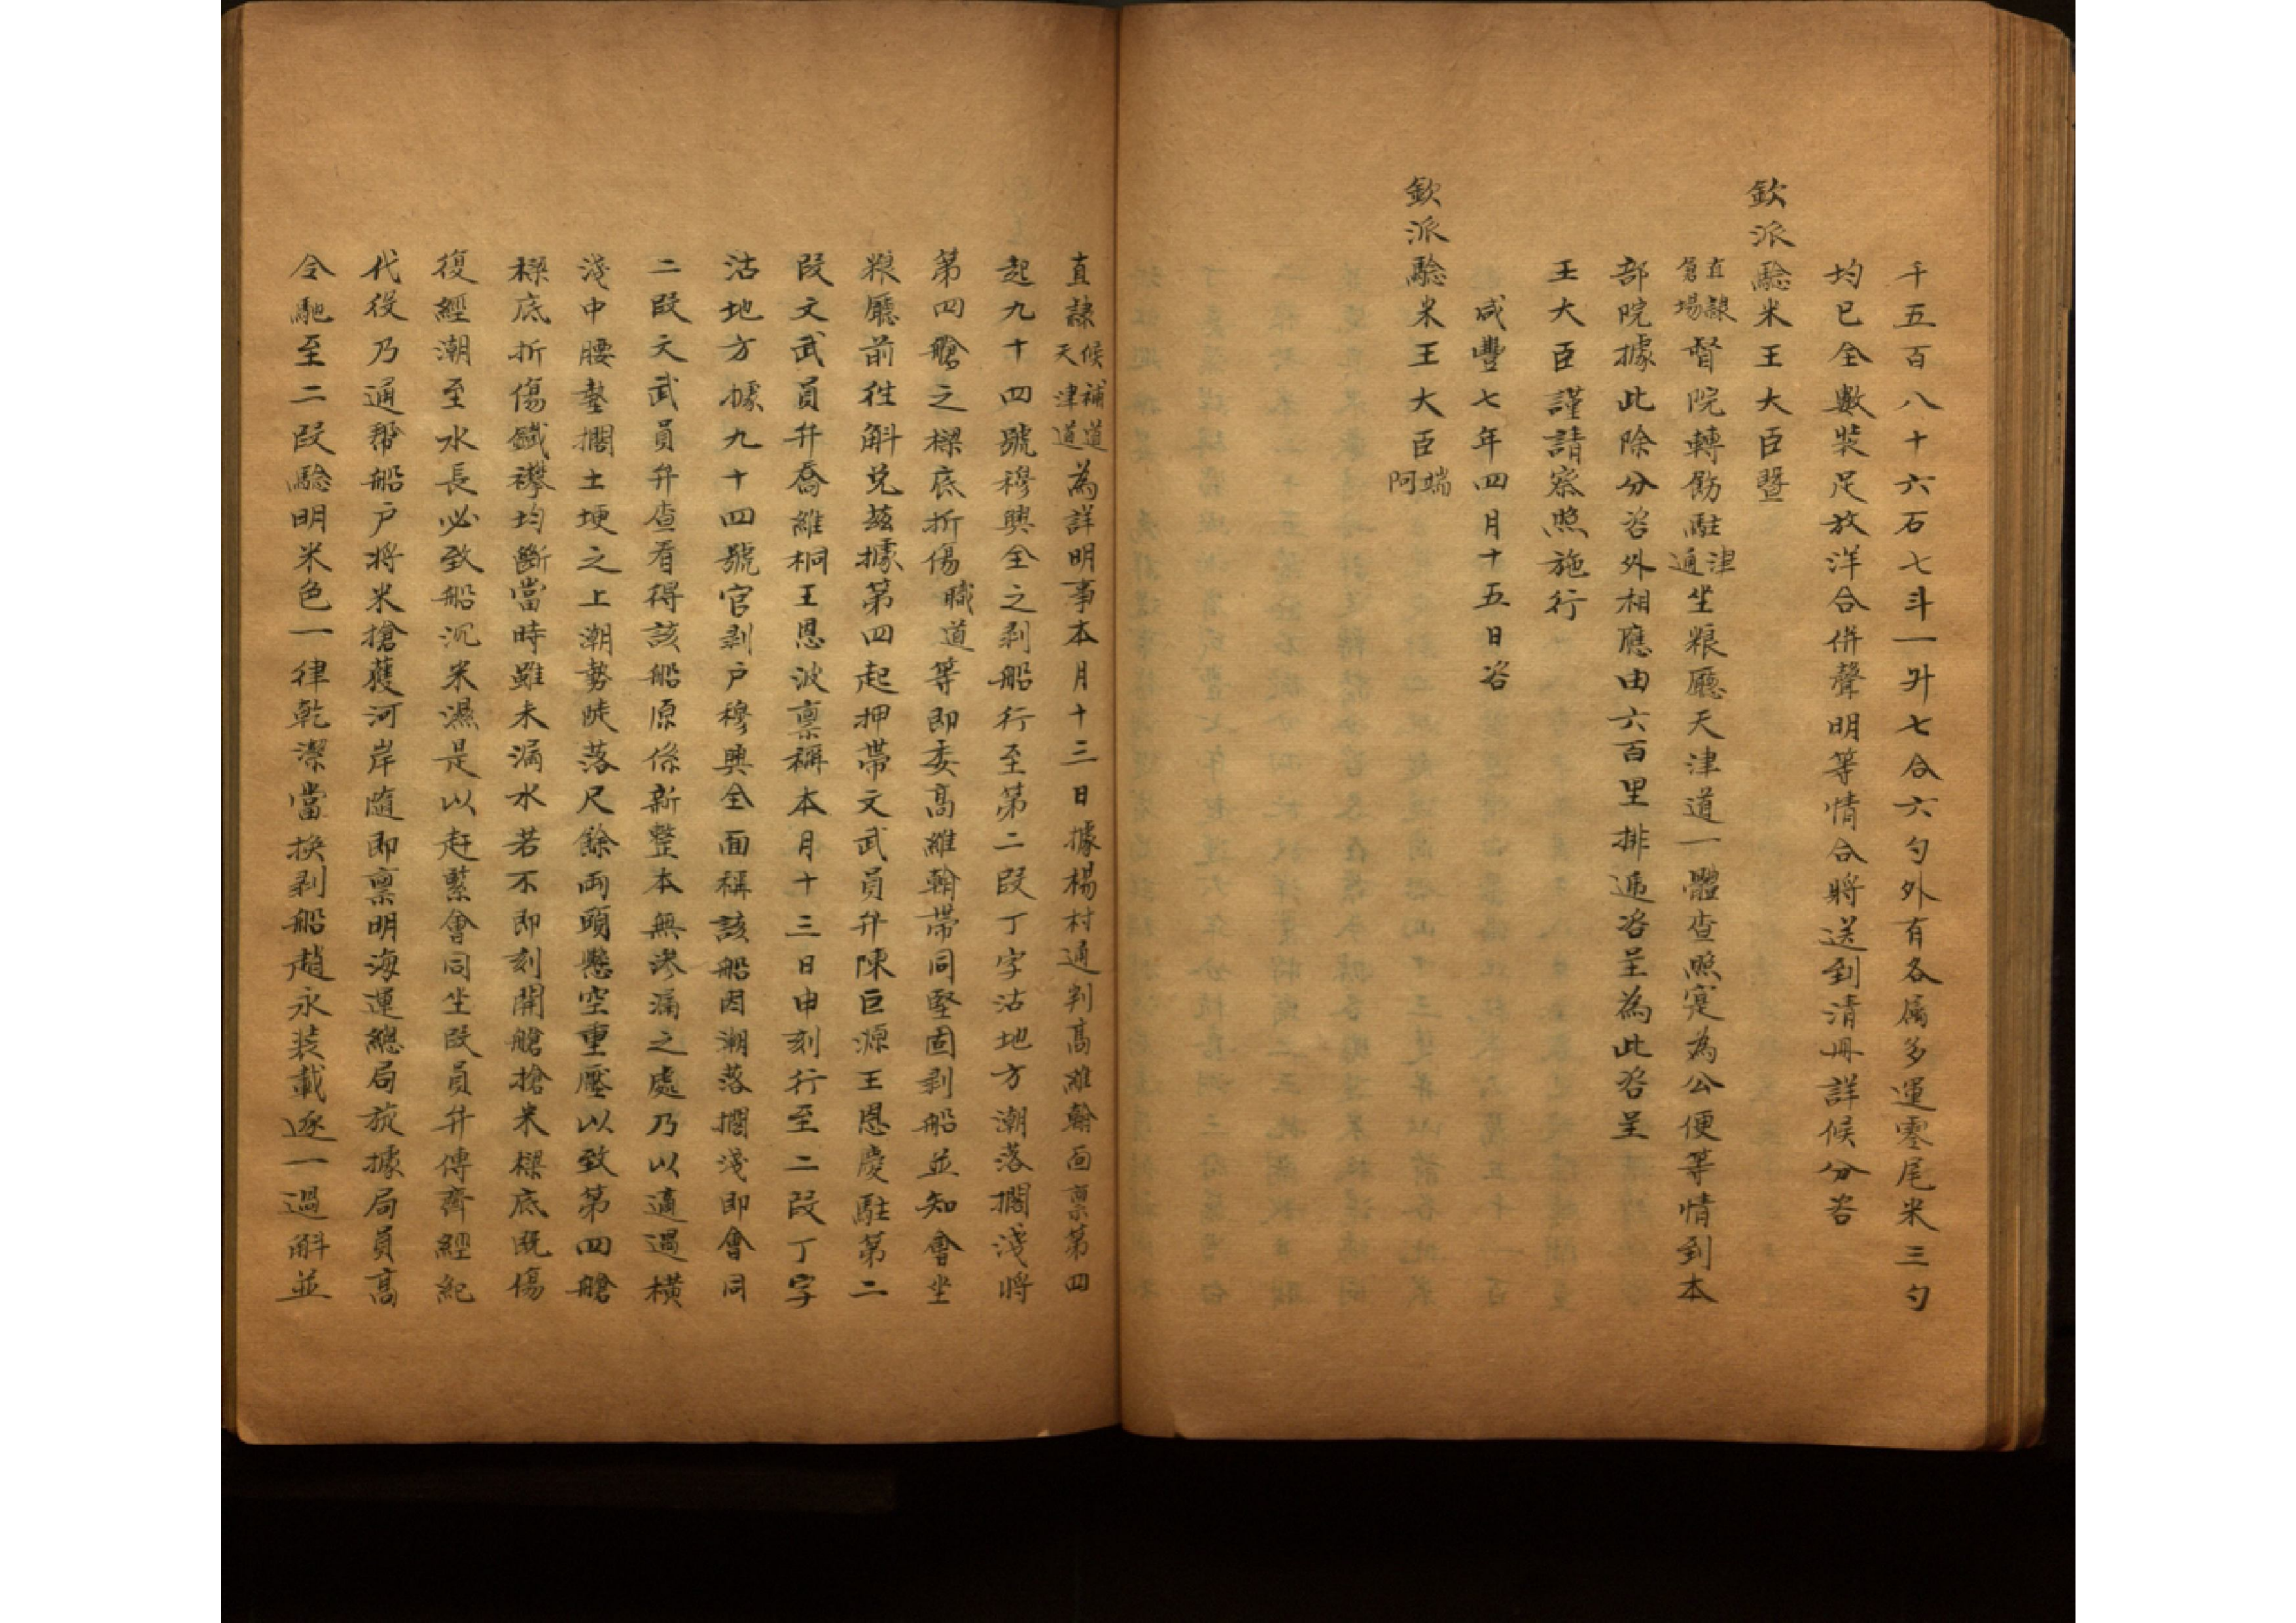 千五百八十六石七斗一升七合六勺外有各属多運零尾米三勺
均已全數裝足放洋合併聲明等情合將送到清冊詳候分咨
欽派驗米王大臣暨
直隸倉場督院轉飭駐津通坐粮廳天津道一體查照寔為公便等情到本
部院據此除分咨外相應由六百里排遞咨呈為此咨呈
王大臣謹請察照施行
咸豐七年四月十五日咨
欽派驗米王大臣端阿
直隸候補道天津道為詳明事本月十三日據楊村通判高維翰面禀第四
起九十四號穆興全之剥船行至第二段丁字沽地方潮落擱淺將
第四艙之樑底折傷職道等即委高維翰帶同堅固剥船並知會坐
粮廳前徃斛兑茲據第四起押帶文武員弁陳巨源王恩慶駐第二
段文武員弁喬維桐王恩波禀稱本月十三日申刻行至二段丁字
沽地方據九十四號官剥户穆興全面稱該船因潮落擱淺即會同
二段文武員弁查看得該船原係新整本無滲漏之處乃以適遇橫
淺中腰墊擱土埂之上潮勢陡落尺餘両頭懸空重壓以致第四艙
樑底折傷鐵襻均斷當時雖未漏水若不即刻開艙搶米樑底既傷
復經潮至水長必致船沉米濕是以赶緊會同坐段員弁傳齊經紀
代役乃通帮船户將米搶護河岸隨即禀明海運總局旋據局員高
令馳至二段驗明米色一律乾潔當換剥船趙永裝載逐一過斛並